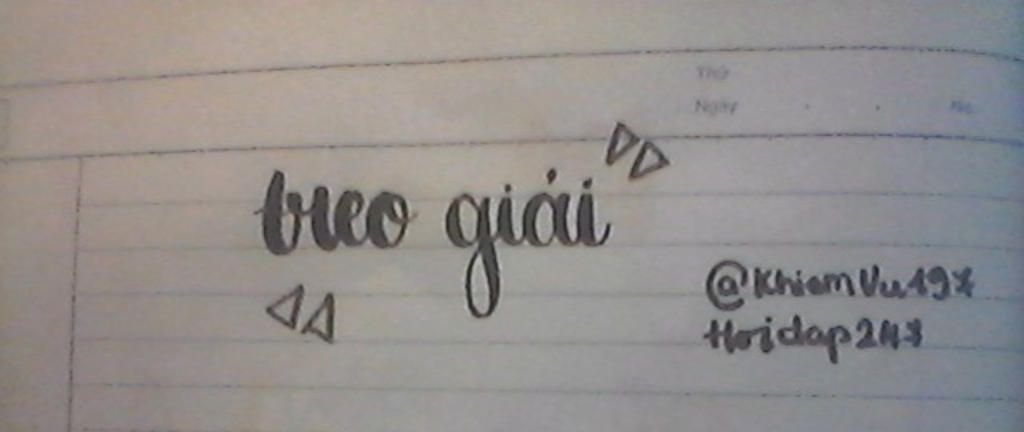 Thứ
Ngày . . No.
treo giải
@KhiemVu197
Hoidap247